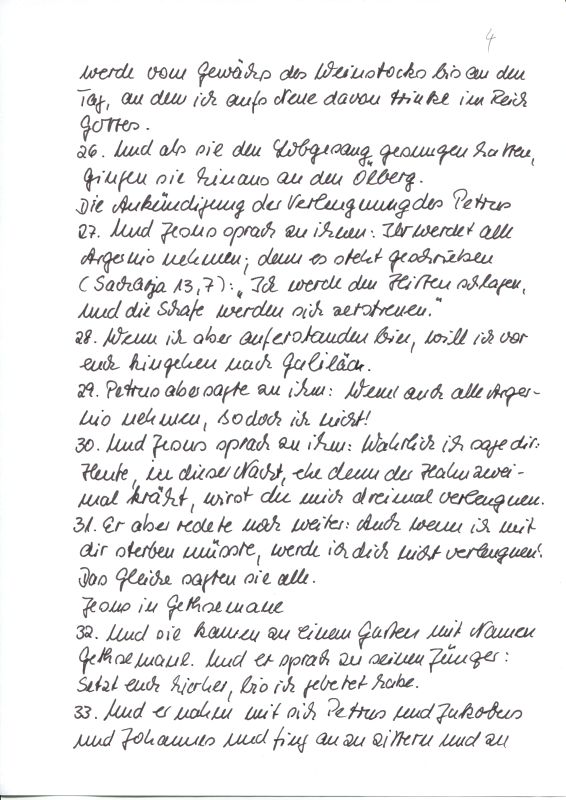 4
werde vom Gewächs des Weinstocks bis an den
Tag, an dem ich aufs Neue davon trinke im Reich
Gottes.
26. Und als sie den Lobgesang gesungen hatten,
gingen sie hinaus an den Ölberg.
Die Ankündigung der Verleugnung des Petrus
27. Und Jesus sprach zu ihnen: Ihr werdet alle
Ärgernis nehmen; denn es steht geschrieben
(Sacharja 13,7): „Ich werde den Hirten schlagen,
und die Schafe werden sich zerstreuen."
28. Wenn ich aber auferstanden bin, will ich vor
euch hingehen nach Galiläa.
29. Petrus aber sagte zu ihm: Wenn auch alle Ärger-
nis nehmen, so doch ich nicht!
30. Und Jesus sprach zu ihm: Wahrlich ich sage dir:
Heute, in dieser Nacht, ehe denn der Hahn zwei-
mal kräht, wirst du mich dreimal verleugnen.
31. Er aber redete noch weiter: Auch wenn ich mit
dir sterben müsste, werde ich dich nicht verleugnen!
Das Gleiche sagten sie alle.
Jesus in Gethsemane
32. Und sie kamen zu einem Garten mit Namen
Gethsemane. Und er sprach zu seinen Jünger:
Setzt euch hierher, bis ich gebetet habe.
33. Und er nahm mit sich Petrus und Jakobus
und Johannes und fing an zu zittern und zu